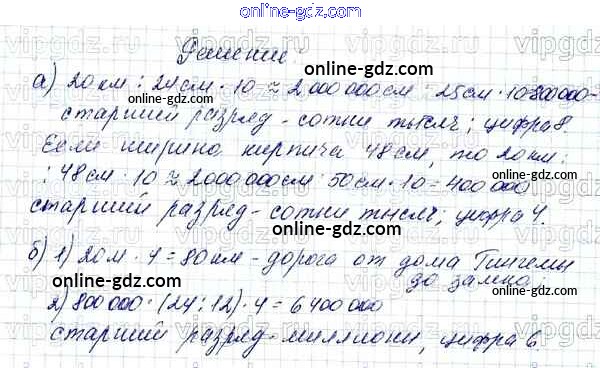 online-gdz.com
Решение.
online-gdz.com
а) 20 км : 24 см · 10 ≈ 2 000 000 см : 25 см · 10 = 800 000 -
старший разряд - сотни тысяч; цифра 8.
online-gdz.com
Если ширина кирпича 48 см, то 20 км :
: 48 см · 10 ≈ 2000 000 см : 50 см · 10 = 400 000
online-gdz.com
старший разряд - сотни тысяч; цифра 4.
online-gdz.com
б) 1) 20 м · 4 = 80 км - дорога от дома Гингемы
до замка
online-gdz.com
2) 800 000 · (24 : 12) · 4 = 6 400 000
online-gdz.com
старший разряд - миллионы, цифра 6.
online-gdz.com